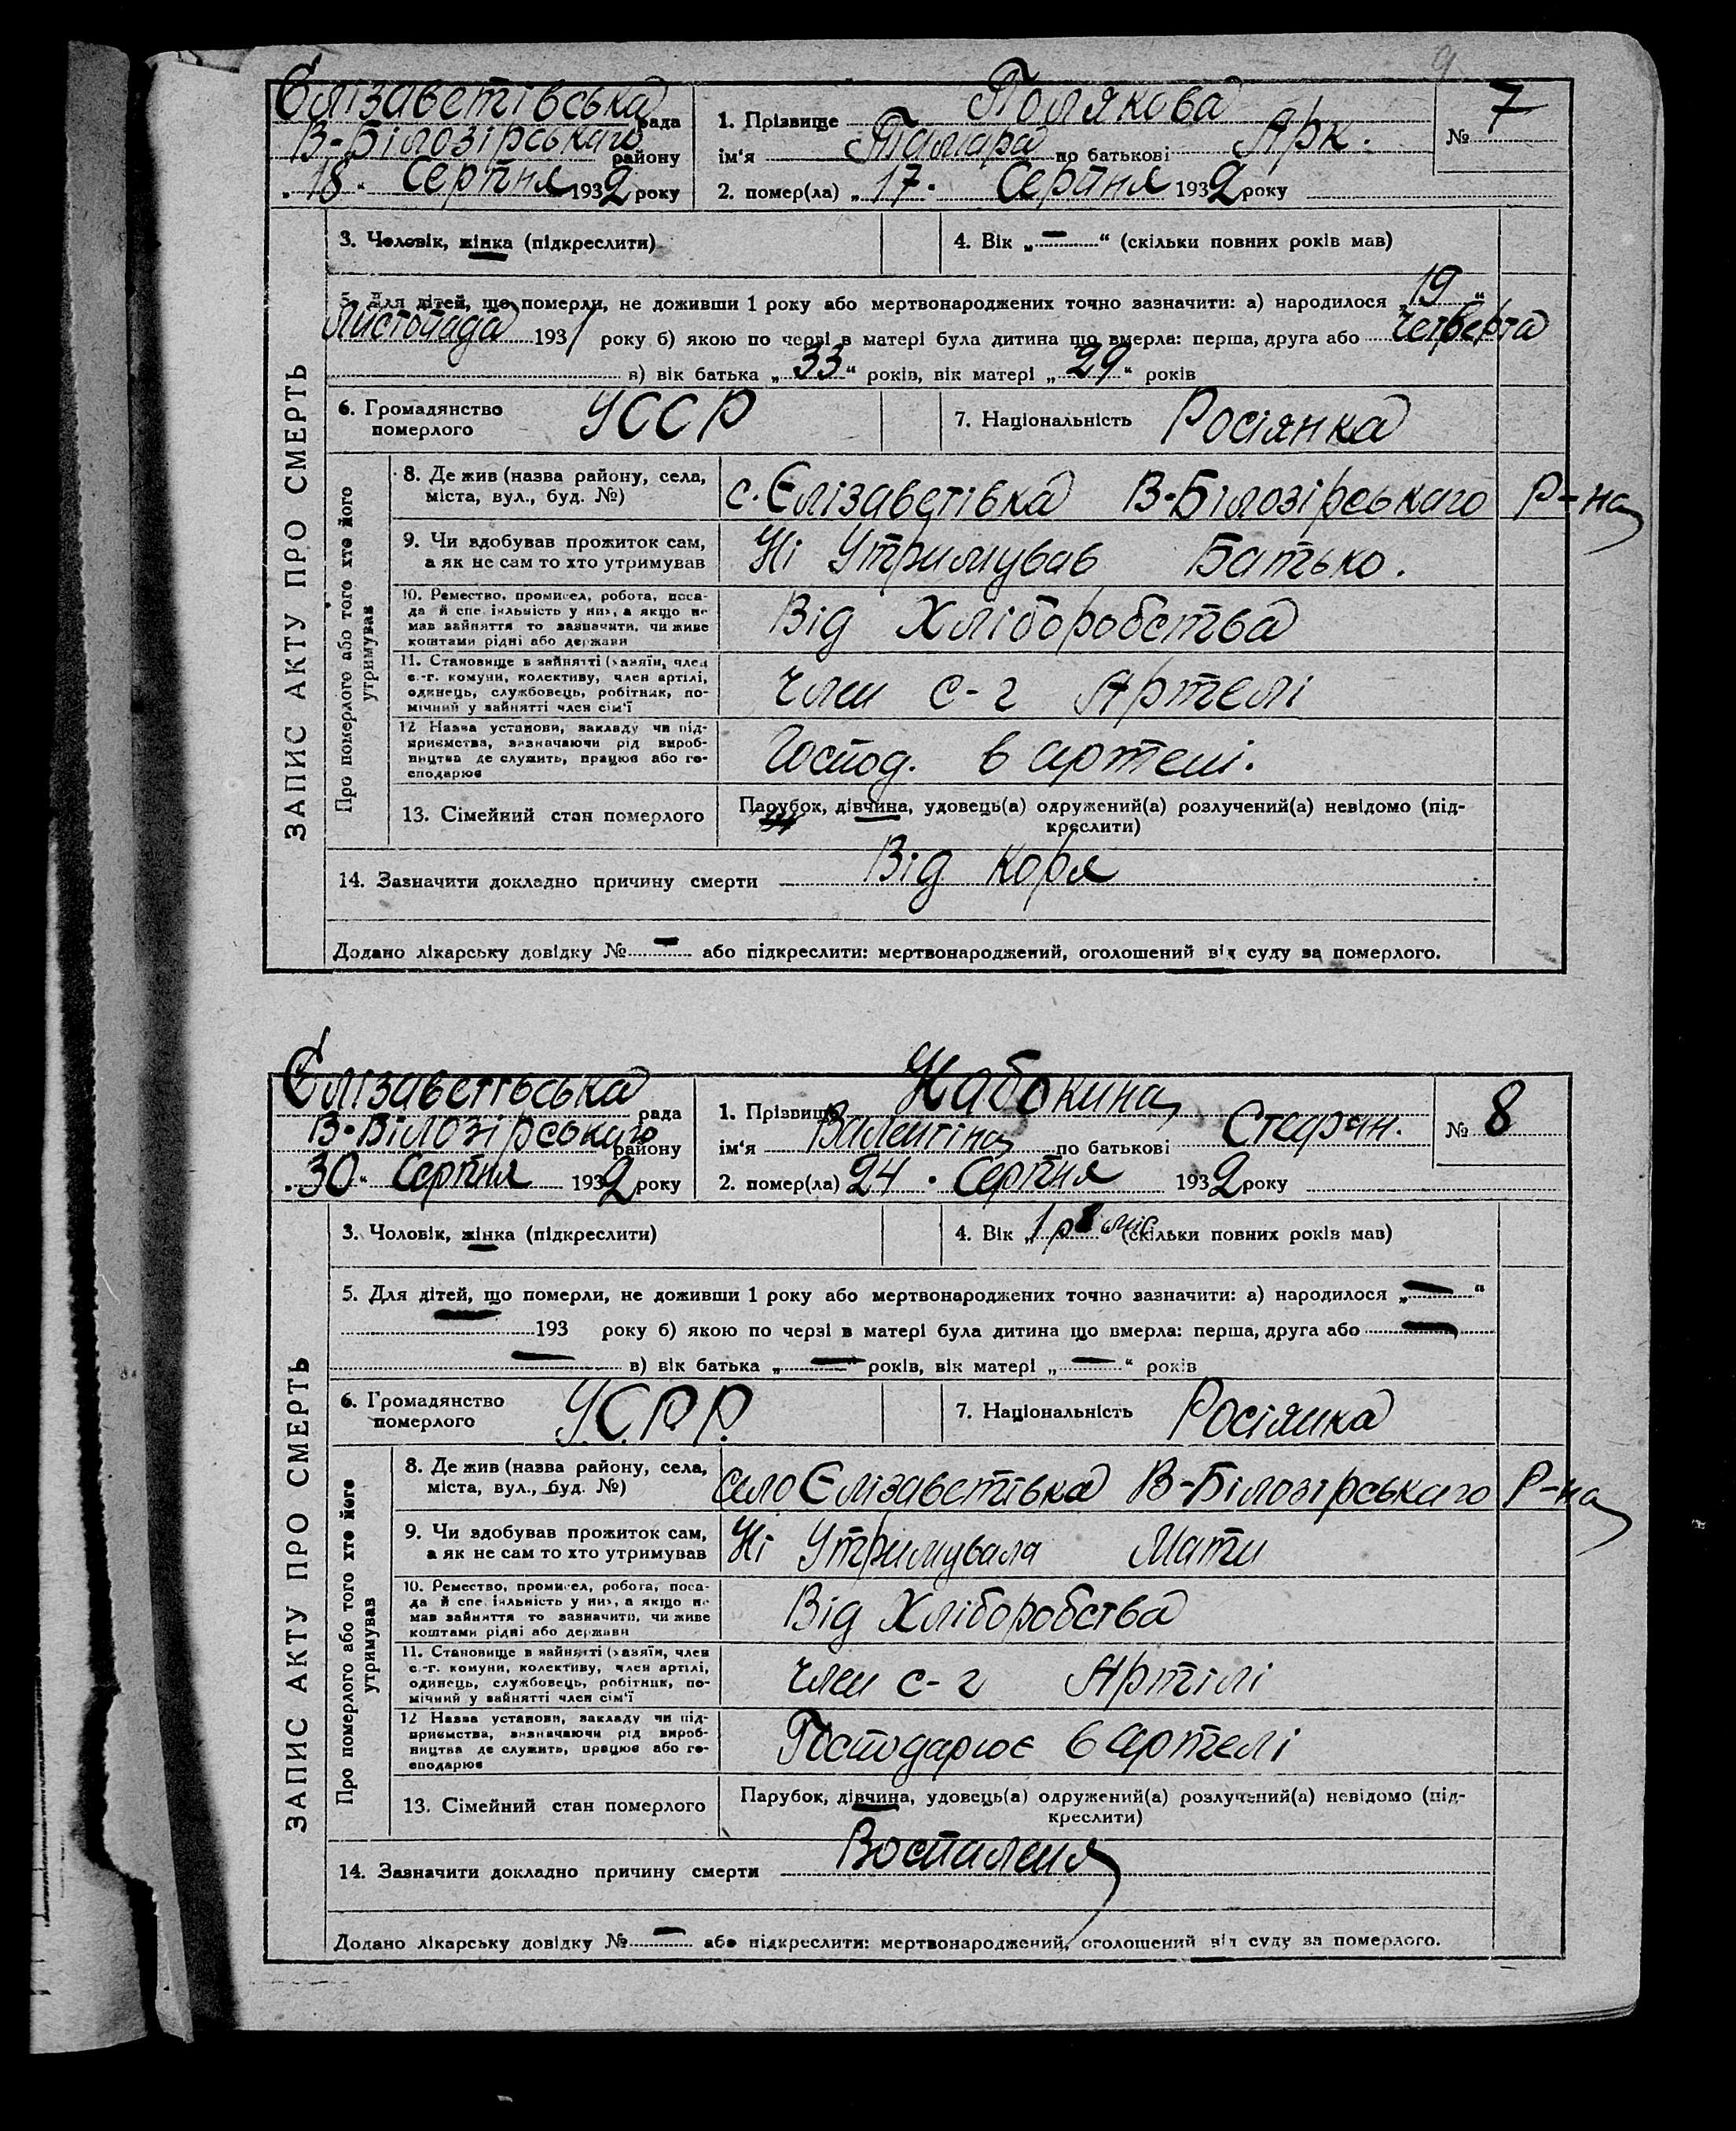 9
Єлізаветівська рада
В-Білозірського району
„18“ Серпня 1932 року
1. Прізвище Полякова
ім‘я Тамара по батькові Арк.
№ 7
2. помер(ла) „17“ Серпня 1932 року
3. Чоловік, жінка (підкреслити)
4. Вік „—“ (скільки повних років мав)
5. Для дітей, що померли, не доживши 1 року або мертвонароджених точно зазначити: а) народилося „19“
Листопада 1931 року б) якою по черзі в матері була дитина що вмерла: перша, друга або четверта
в) вік батька „33“ років, вік матері „29“ років
6. Громадянство померлого УССР
7. Національність Росіянка
ЗАПИС АКТУ ПРО СМЕРТЬ
Про померлого або того хто його утримував
8. Де жив (назва району, села,
міста, вул., буд. №)
с. Єлізаветівка В-Білозірського Р-на
9. Чи здобував прожиток сам,
а як не сам то хто утримував
Ні Утримував Батько.
10. Ремество, промисел, робота, поса-
да й спеціяльність у них, а якщо не
мав зайняття то зазначити, чи живе
коштами рідні або держави
Від Хліборобства
11. Становище в зайнятті (хазяїн, член
с.-г. комуни, колективу, член артілі,
одинець, службовець, робітник, по-
мічний у зайнятті член сім‘ї
Член с-г Артелі
12 Назва установи, закладу чи під-
приємства, зазначаючи рід вироб-
ництва де служить, працює або го-
сподарює
Господ. в артелі.
13. Сімейний стан померлого
Парубок, дівчина, удовець(а) одружений(а) розлучений(а) невідомо (під-
креслити)
14. Зазначити докладно причину смерти Від Коря
Додано лікарську довідку № — або підкреслити: мертвонароджений, оголошений від суду за померлого.
Єлізаветівська рада
В-Білозірського району
„30“ Серпня 1932 року
1. Прізвище Набокина
ім‘я Валентіна по батькові Стефан.
№ 8
2. помер(ла) 24 Серпня 1932 року
3. Чоловік, жінка (підкреслити)
4. Вік „1 р 8 міс“ (скільки повних років мав)
5. Для дітей, що померли, не доживши 1 року або мертвонароджених точно зазначити: а) народилося „—“
193 року б) якою по черзі в матері була дитина що вмерла: перша, друга або —
— в) вік батька „—“ років, вік матері „—“ років
6. Громадянство померлого У.С.Р.Р.
7. Національність Росіянка
ЗАПИС АКТУ ПРО СМЕРТЬ
Про померлого або того хто його утримував
8. Де жив (назва району, села,
міста, вул., буд. №)
село Єлізаветівка В-Білозірського Р-на
9. Чи здобував прожиток сам,
а як не сам то хто утримував
Ні Утримувала Мати
10. Ремество, промисел, робота, поса-
да й спеціяльність у них, а якщо не
мав зайняття то зазначити, чи живе
коштами рідні або держави
Від Хліборобства
11. Становище в зайнятті (хазяїн, член
с.-г. комуни, колективу, член артілі,
одинець, службовець, робітник, по-
мічний у зайнятті член сім‘ї
Член с-г Артілі
12 Назва установи, закладу чи під-
приємства, зазначаючи рід вироб-
ництва де служить, працює або го-
сподарює
Господарює в артелі
13. Сімейний стан померлого
Парубок, дівчина, удовець(а) одружений(а) розлучений(а) невідомо (під-
креслити)
14. Зазначити докладно причину смерти Воспаленя
Додано лікарську довідку № — або підкреслити: мертвонароджений, оголошений від суду за померлого.